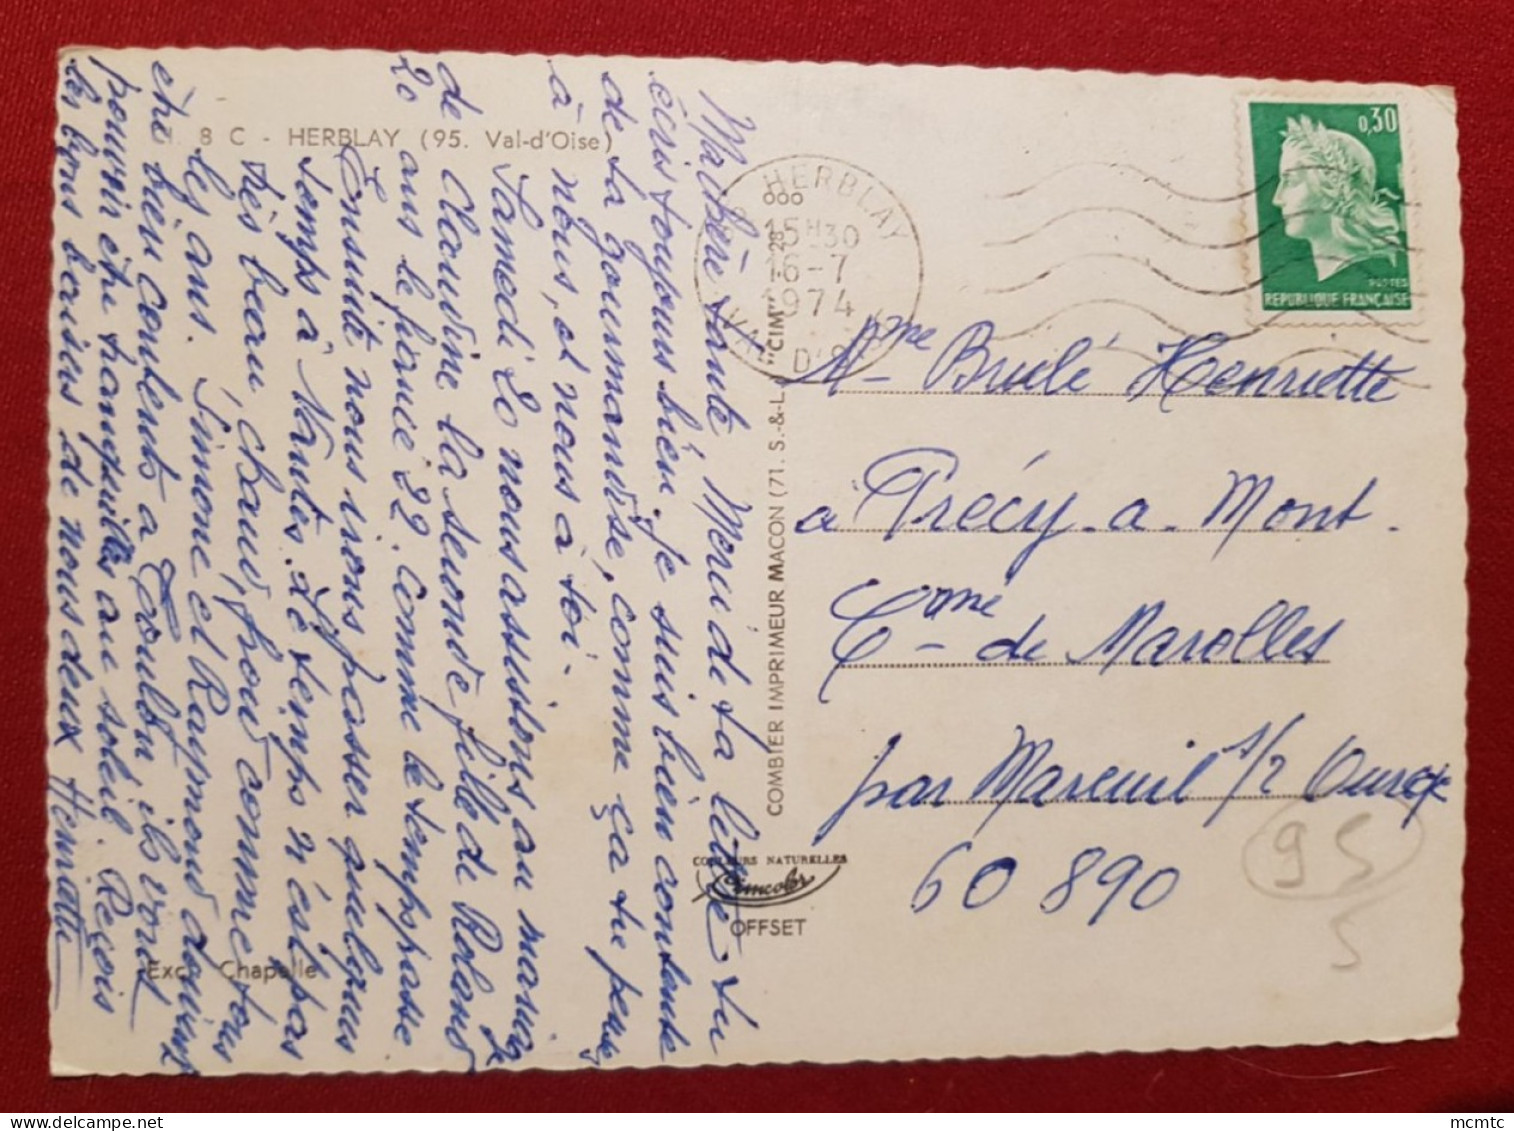 8 C - HERBLAY (95. Val-d'Oise)
Ma chère tante Merci de ta lettre tu
écris toujours bien. Je suis bien contente
de ta gourmandise, comme ça tu penses
à nous, et nous à toi.
Samedi 20 nous assistons au mariage
de Claudine la seconde fille de Roland
20 ans le fiancé 22. Comme le temps passe
Ensuite nous irons passer quelques
temps à Nantes. Le temps n'est pas
très beau, chaud, froid comme tous
les ans. Simone et Raymond doivent
être bien contents à Toulon, ils vont
pouvoir être tranquilles au soleil. Reçois
les bons baisers de nous deux Henriette
Exc. Chapelle
COMBIER IMPRIMEUR MACON (71. S.-&-L.) "CIM"
COULEURS NATURELLES
Cimcolor
OFFSET
HERBLAY
15H30
16-7
1974
VAL D'OISE
0,30
POSTES
REPUBLIQUE FRANÇAISE
Mme Brulé Henriette
à Précy-à-Mont.
Cme de Marolles
par Mareuil s/ Ourcq
60 890
95
5
mcmtc